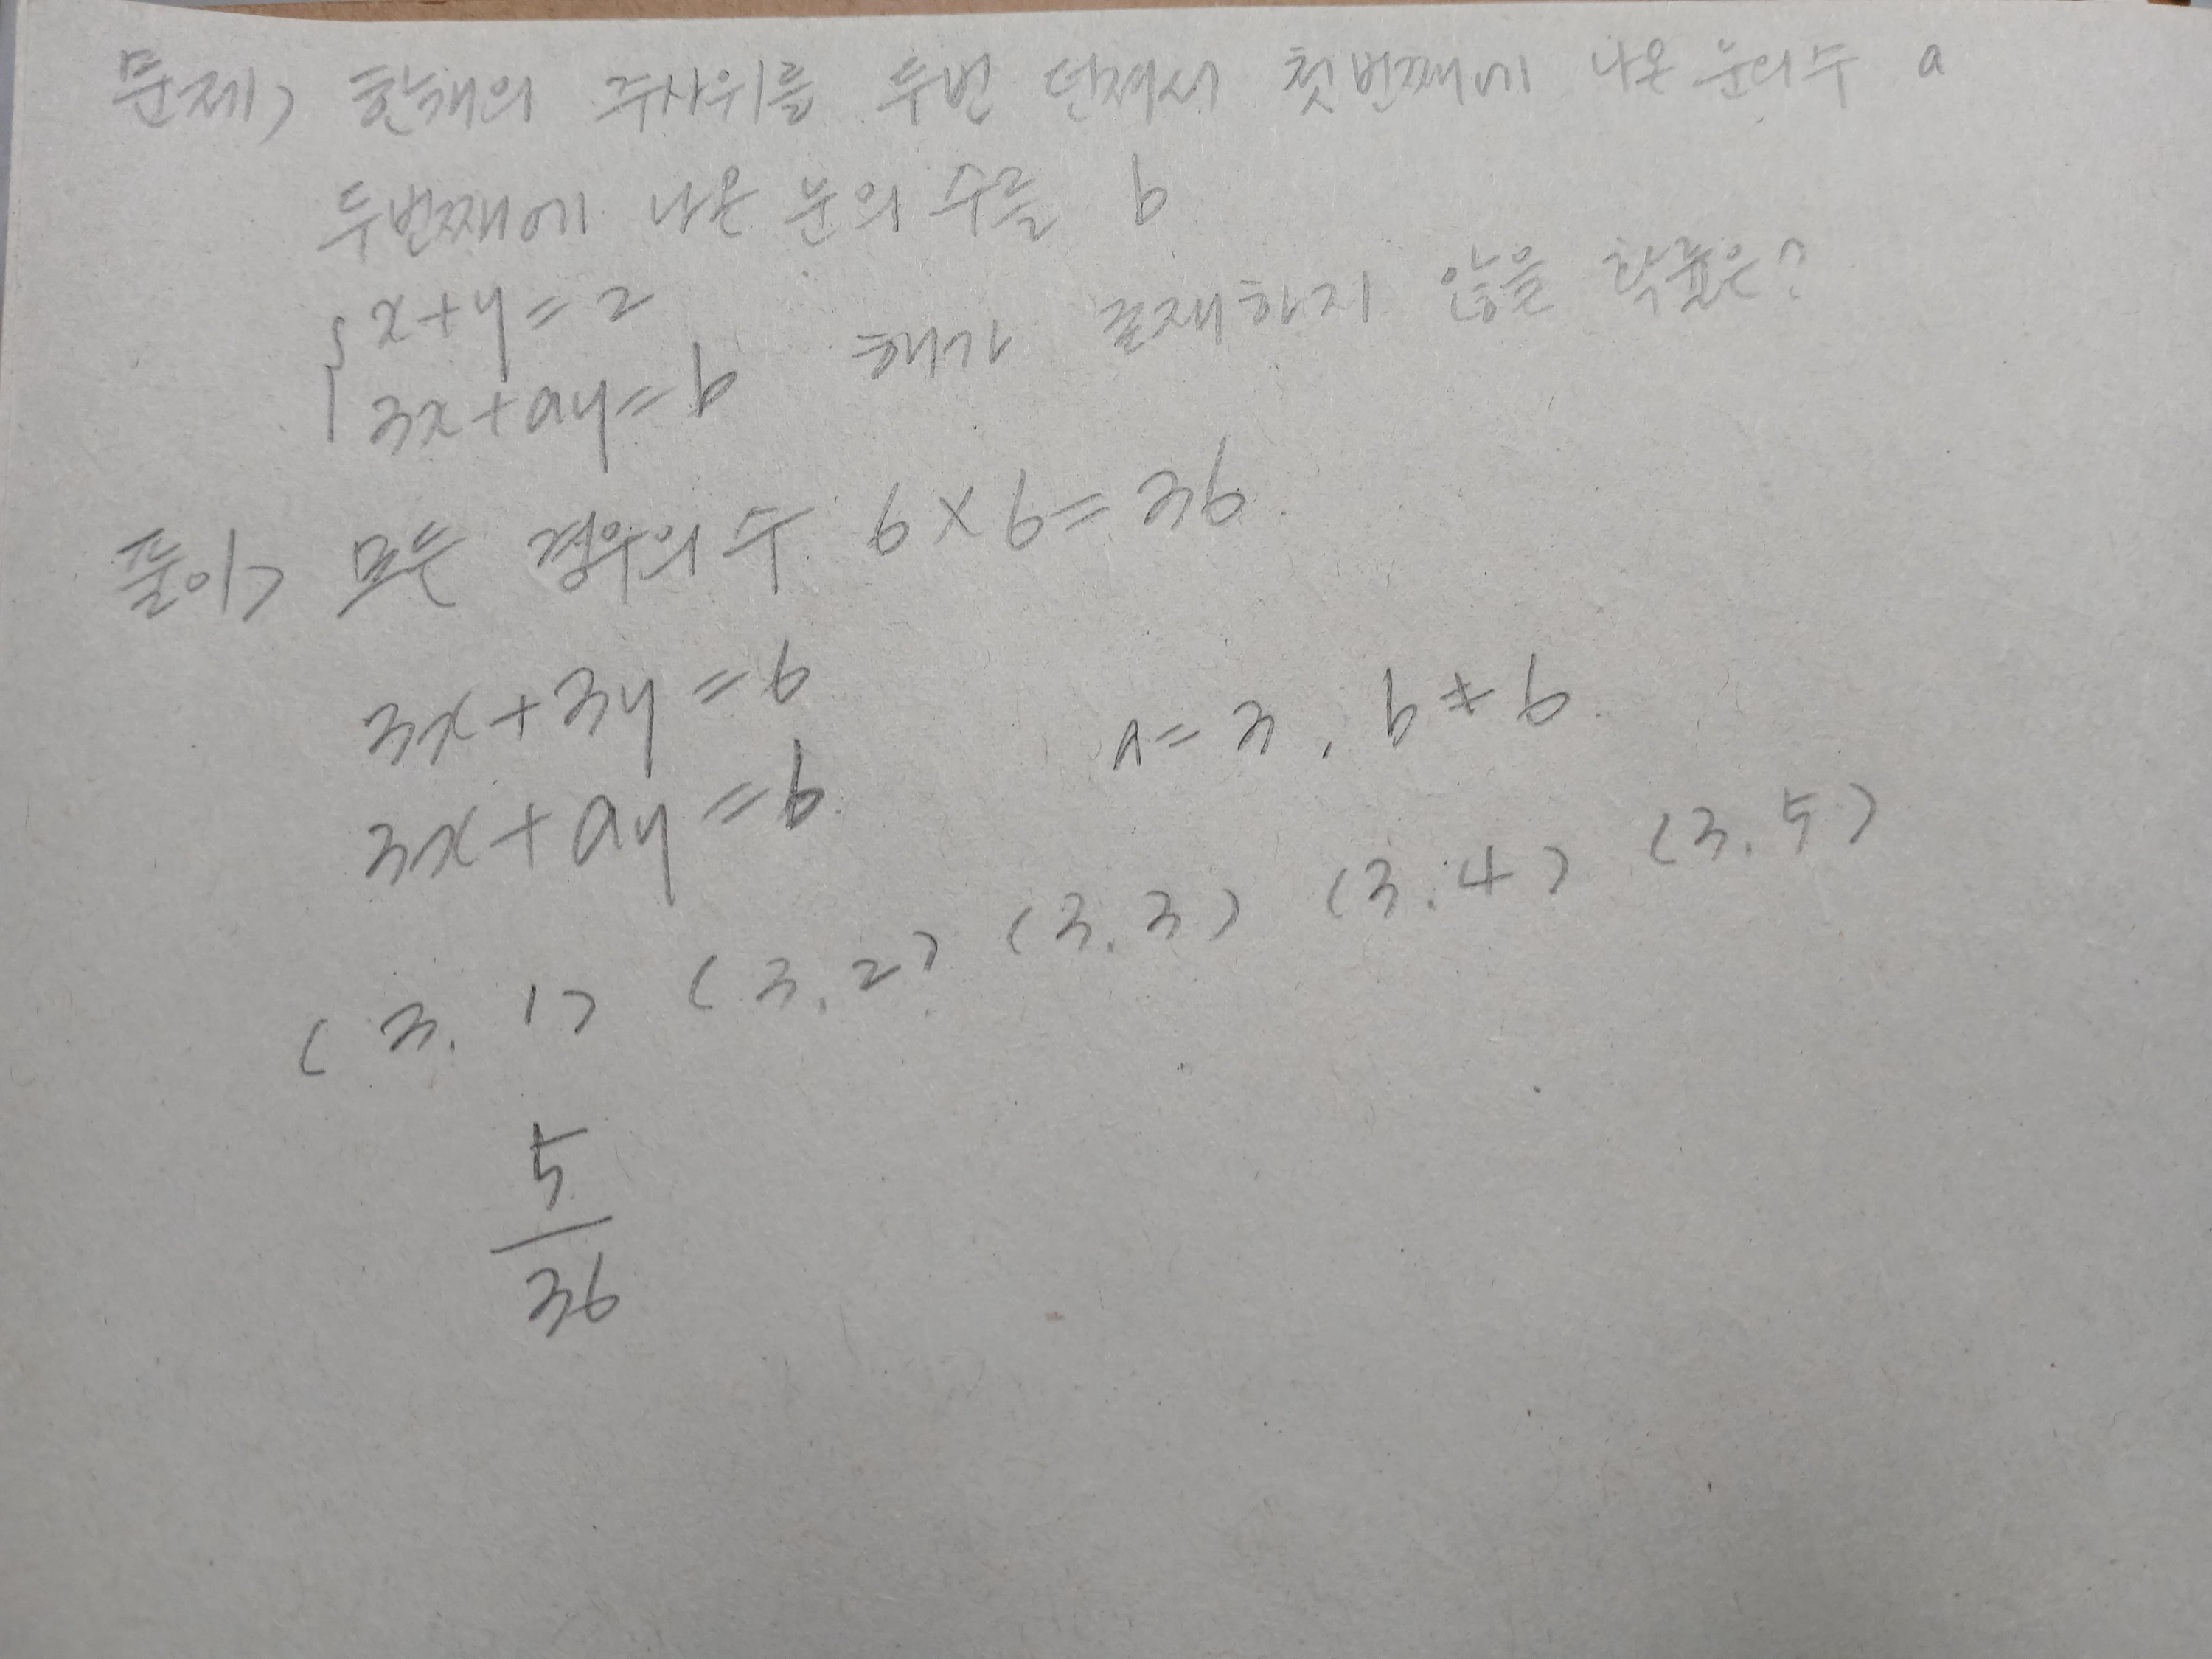 문제> 한개의 주사위를 두번 던져서 첫번째에 나온 눈의수 a
두번째에 나온 눈의 수를 b
{x+y=2
3x+ay=b 해가 존재하지 않을 확률은?
풀이> 모든 경우의 수 6×6=36.
3x+3y=6
a=3, b≠6.
3x+ay=b.
(3, 1) (3, 2) (3, 3) (3, 4) (3, 5)
5
36